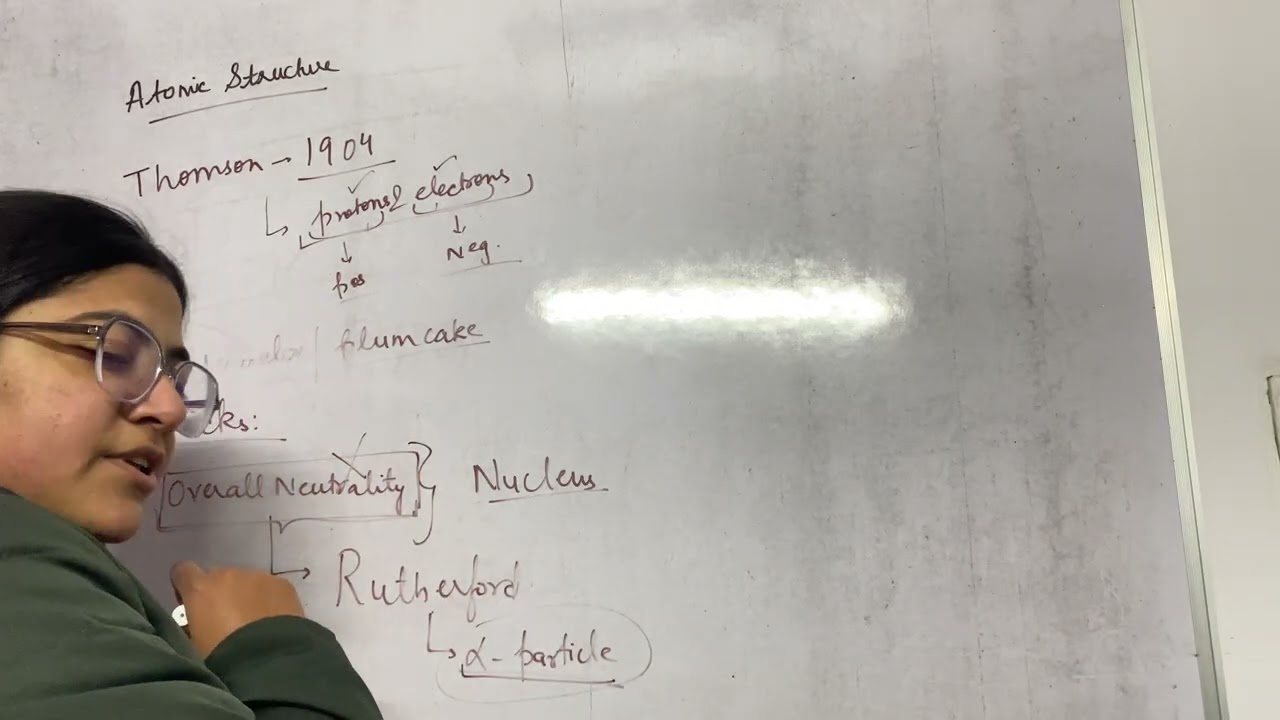 Atomic Structure
Thomson → 1904
↳ protons & electrons
↓ ↓
pos Neg.
/ plum cake
cks:
Overall Neutrality } Nucleus
↳ Rutherford
↳ α- particle